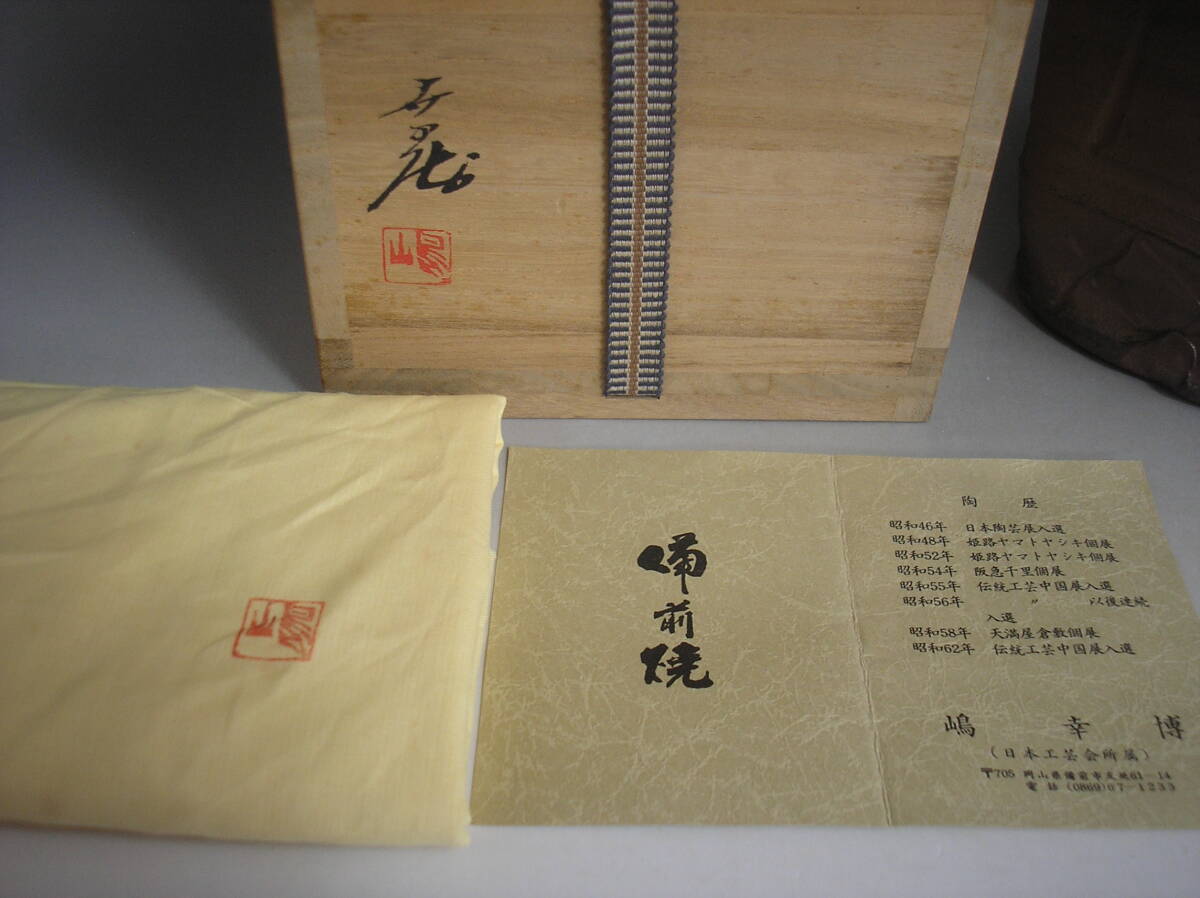 備前焼
陶歴
昭和46年 日本陶芸展入選
昭和48年 姫路ヤマトヤシキ個展
昭和52年 姫路ヤマトヤシキ個展
昭和54年 阪急千里個展
昭和55年 伝統工芸中国展入選
昭和56年 〃 以後連続
入選
昭和58年 天満屋倉敷個展
昭和62年 伝統工芸中国展入選
嶋 幸 博
(日本工芸会所属)
〒705 岡山県備前市友延61-14
電話 (0869)67-1233